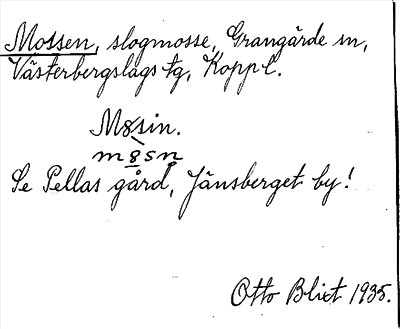 Mossen, slogmosse, Grangärde sn,
Västerbergslags tg, Kopp l.
M8sin.
m8sn̥
Se Pellas gård, Jänsberget by!
Otto Blixt 1935.